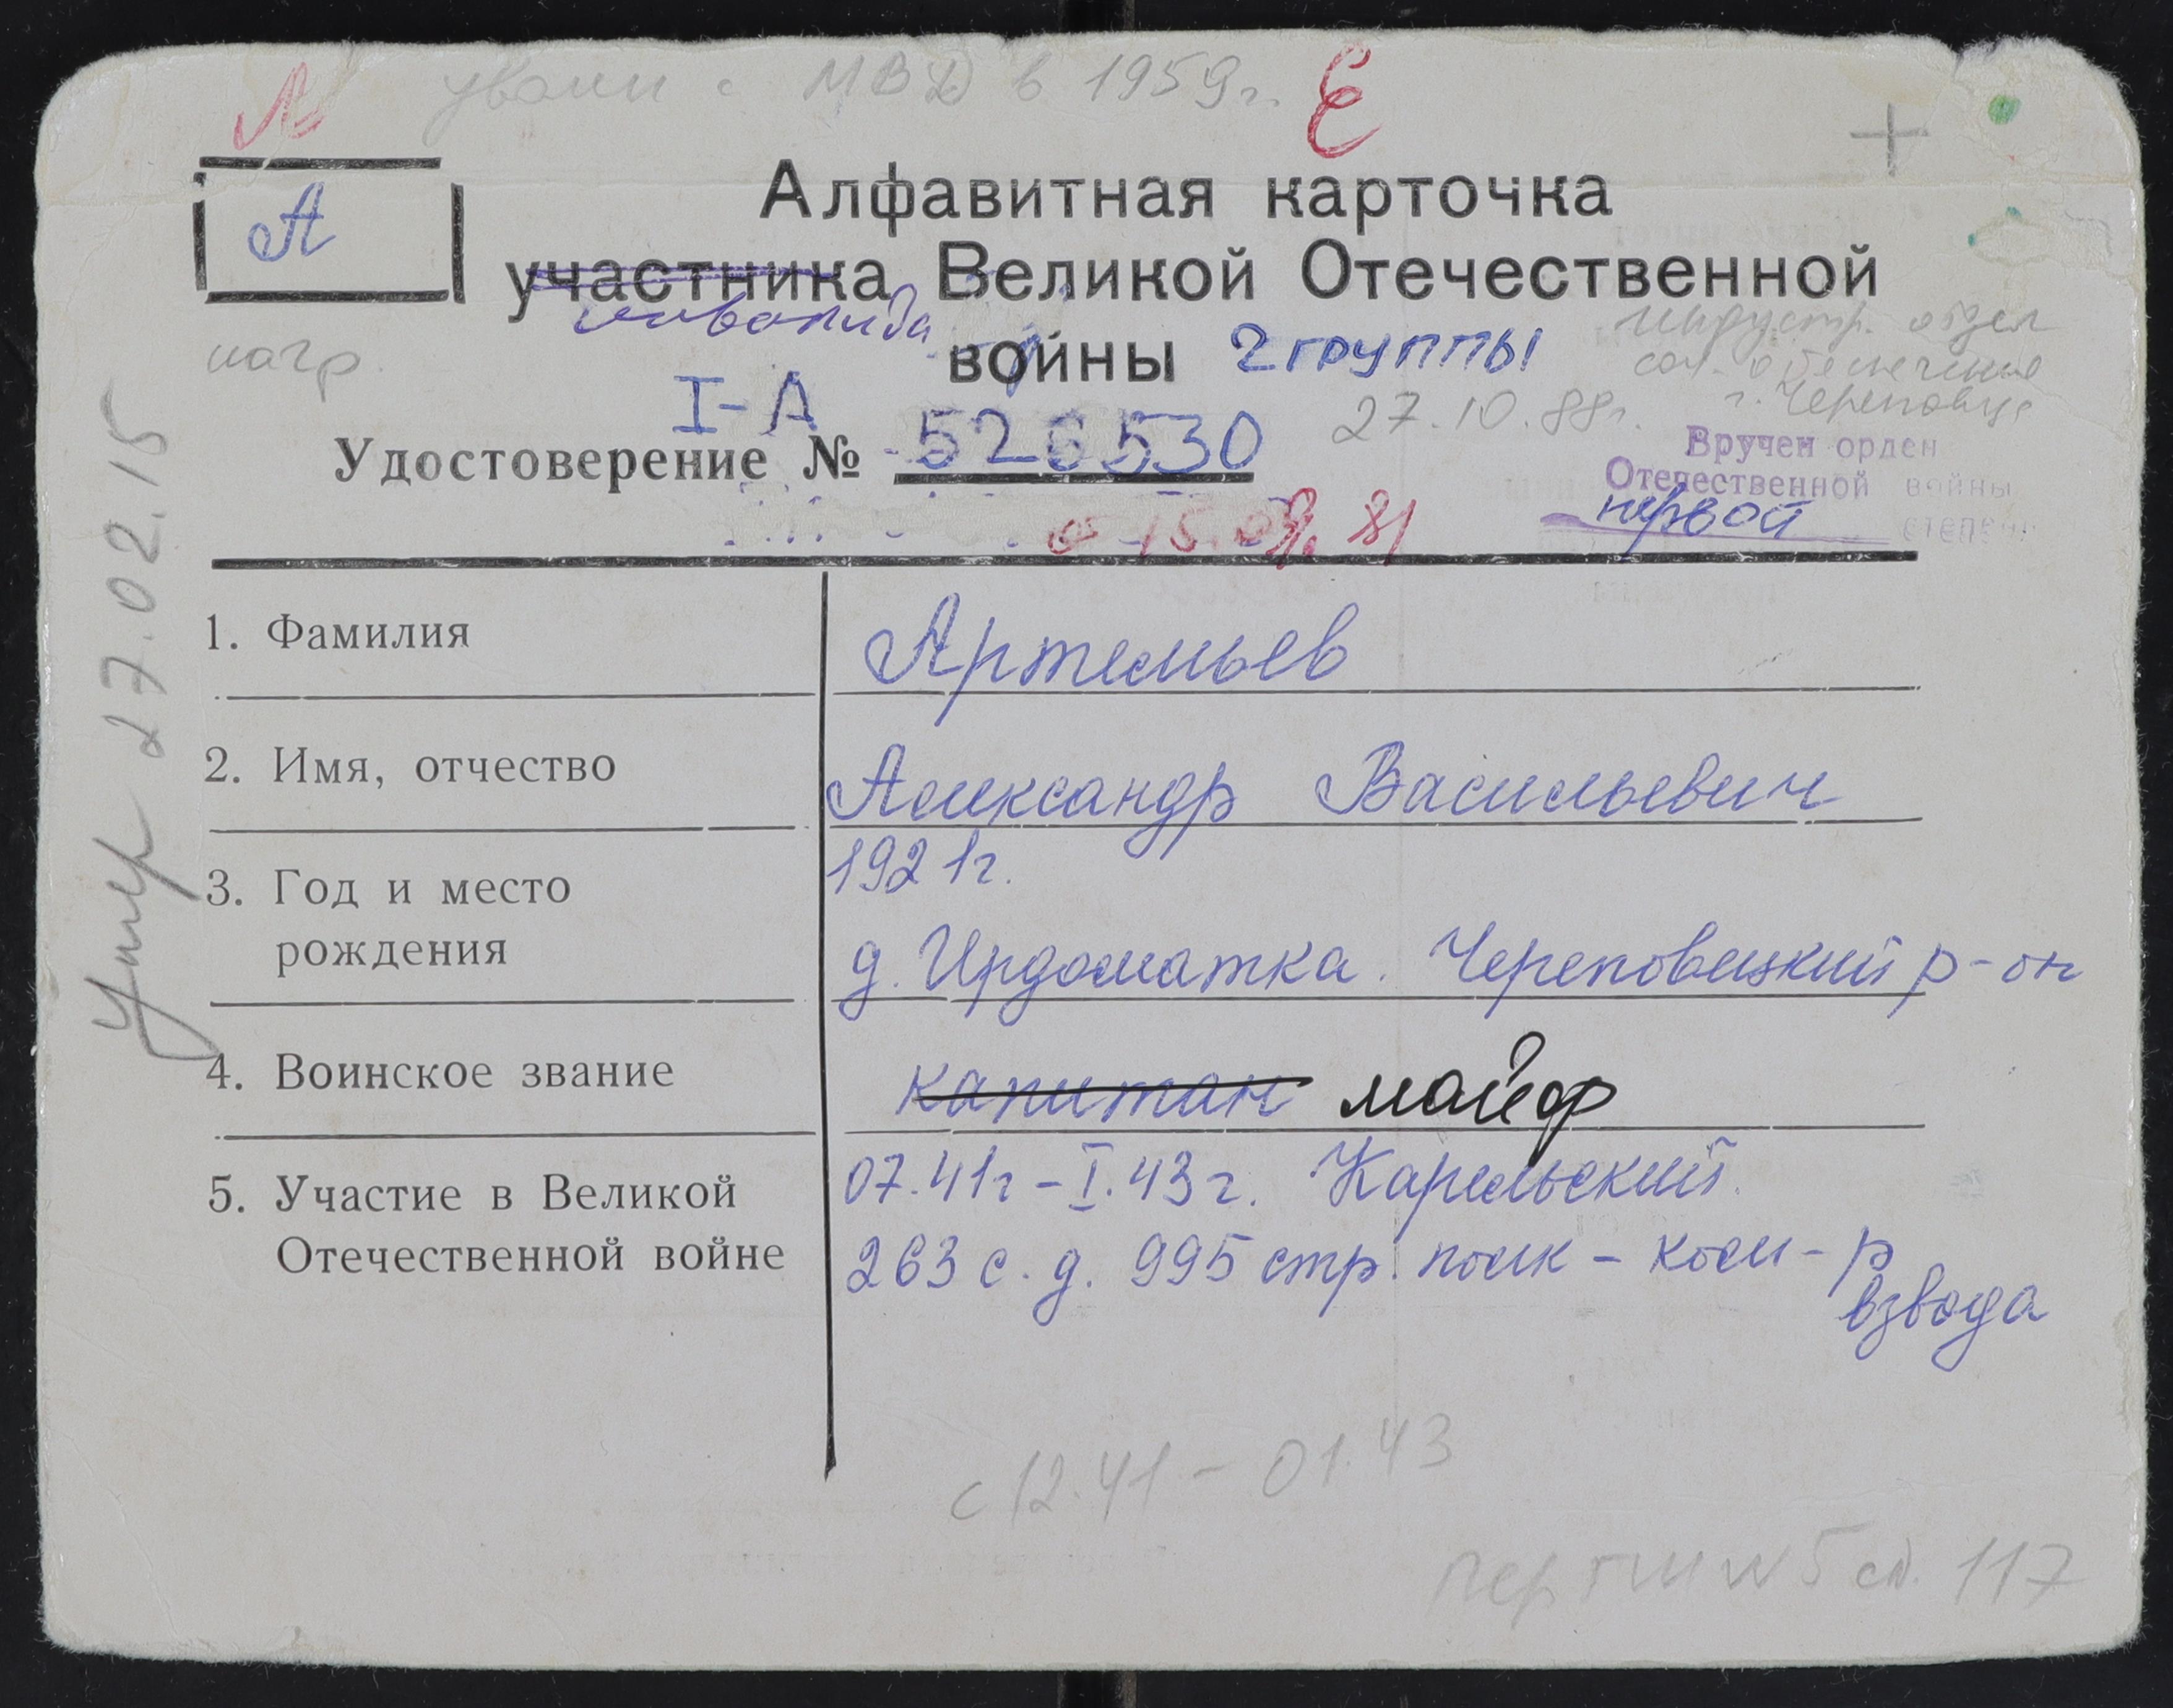 уволен с МВД в 1959г. Е
А
Алфавитная карточка
участника Великой Отечественной
инвалида
войны 2 группы
нагр.
Индустр. отдел
соц. обеспечения
г. Череповца
27.10.88г.
I-А
Удостоверение № 526530
Вручен орден
Отечественной войны
первой степени
Умер 27.02.15
1. Фамилия Артемьев
2. Имя, отчество Александр Васильевич
3. Год и место рождения 1921г.
д. Ирдоматка. Череповецкий р-он
4. Воинское звание капитан майор
5. Участие в Великой Отечественной войне 07.41г - I.43г. Карельский
263 с.д. 995 стр. полк - ком-р
взвода
с 12.41 - 01.43
117